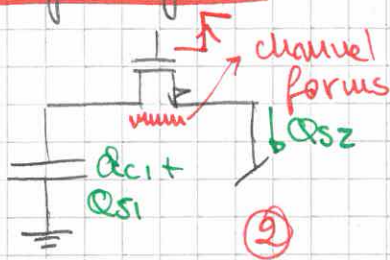 channel
forms
QS2
QC1 +
QS1
2